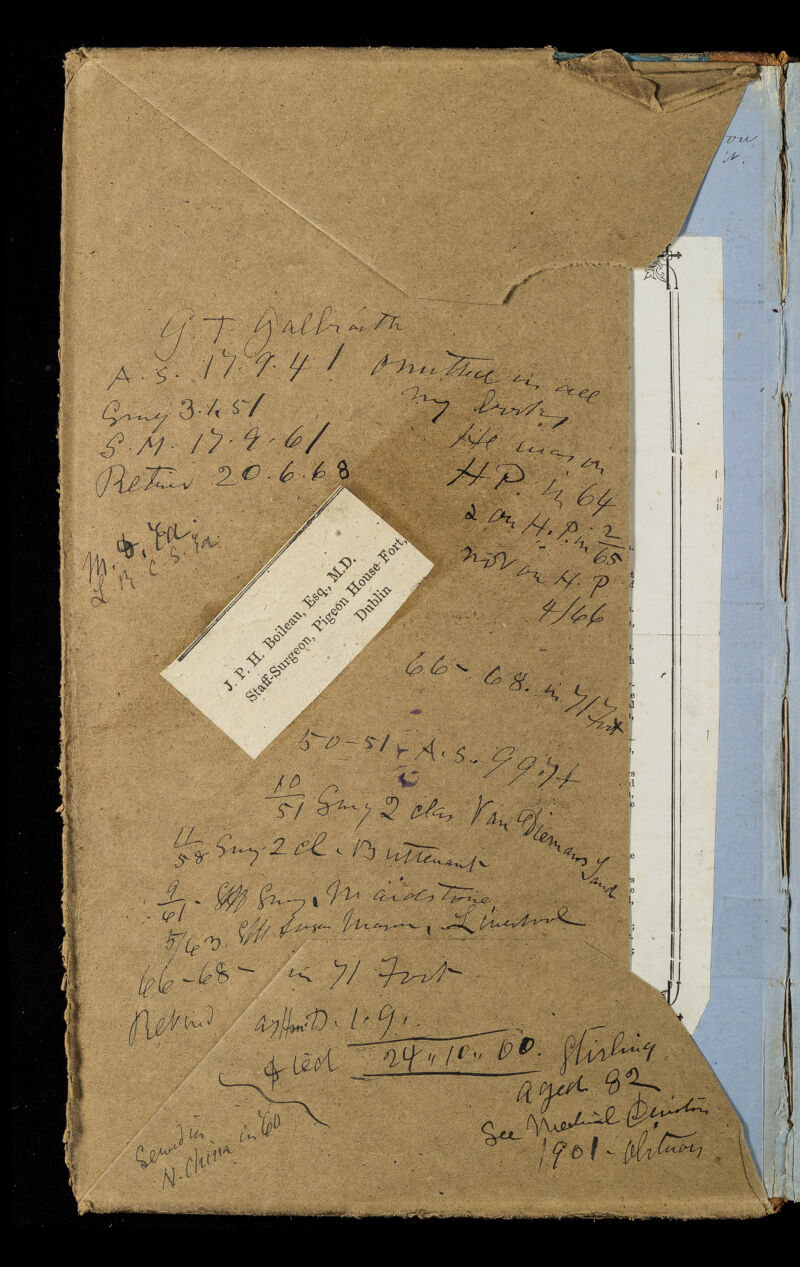 G. T. Galbraith
A. S. 17. 9. 41 omitted in all
my books
Surg 3. 1. 51
He was on
S. M. 17. 9. 61
H P. in 64
Retired 20. 6. 68
& on H. P. in 2/65
not on H. P
4/66
M. D. Ed.
L. R. C. S. Ed.
J. P. H. Boileau, Esq., M.D.
Staff-Surgeon, Pigeon House Fort,
Dublin
66 - 68. in 71 Foot
50 - 51 A. S.
10/51 Surg 2 clas Van Diemans Land
11/58 Surg. 2 cl. Buttevant
9/61 - Stff Surg, Maidstone,
5/63. Stff Surgn Major, Liverpool
66 - 68 - in 71 Foot
Retired as Hon D. I. G.
died 24 " 10 " 00. Stirling
aged 82
Served in
N. China in 60
See Medical Directory
1901 - Obituary